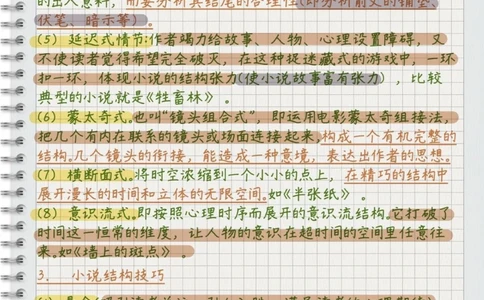 的出人意料，而要分析其结尾的合理性(即分析前文的铺垫、
伏笔、暗示等)。
(5) 延迟式情节:作者竭力给故事、人物、心理设置障碍，又
不使读者觉得希望完全破灭，在这种捉迷藏式的游戏中，一环
扣一环，体现小说的结构张力(使小说故事富有张力)，比较
典型的小说就是《牲畜林》。
(6) 蒙太奇式。也叫“镜头组合式”，即运用电影蒙太奇组接法，
把几个有内在联系的镜头或场面连接起来，构成一个有机完整的
结构。几个镜头的衔接，能造成一种意境，表达出作者的思想。
(7) 横断面式。将时空浓缩到一个小小的点上，在精巧的结构中
展开漫长的时间和立体的无限空间。如《半张纸》。
(8) 意识流式。即按照心理时序而展开的意识流结构。它打破了
时间这一恒常的维度，让人物的意识在超时间的空间里任意往
来。如《墙上的斑点》。
3. 小说结构技巧